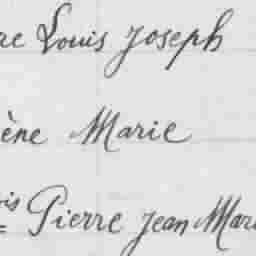 re Louis Joseph
ène Marie
ois Pierre Jean Mari